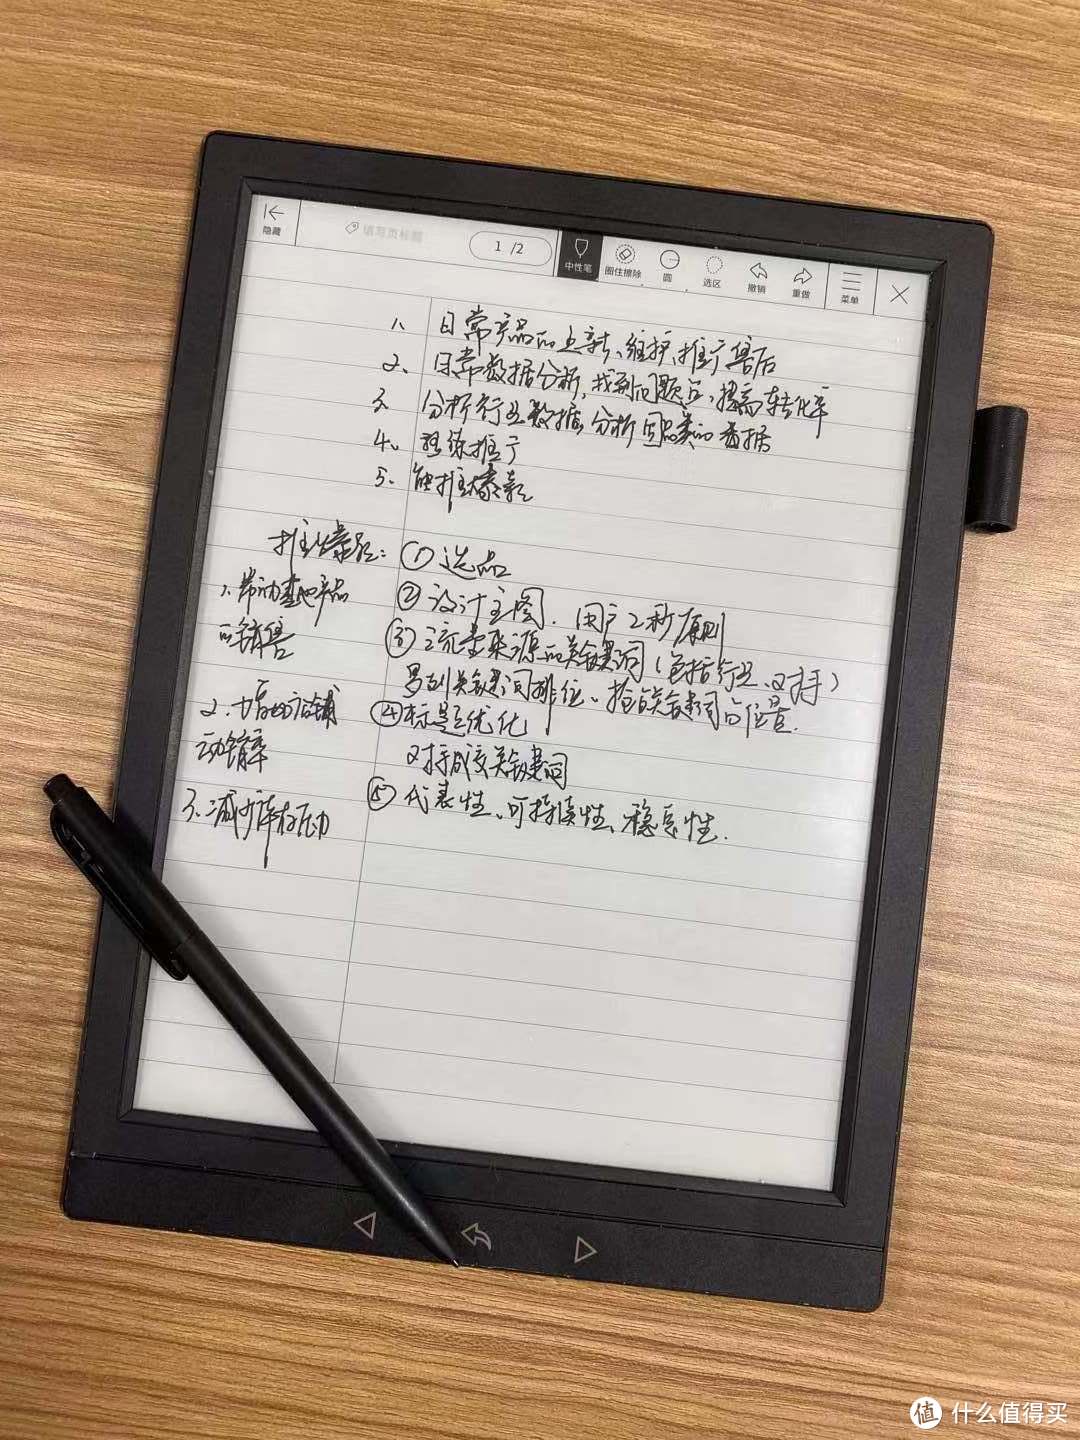 隐藏
填写页标题
1 /2
中性笔
圈住擦除
圆
选区
撤销
重做
菜单
1、日常产品的上新、维护、推广售后
2、日常数据分析,找到问题点,提高转化率
3、分析行业数据,分析同品类的数据
4、熟练推广
5、能推爆款
推爆款:
1、带动其他产品
的销售
2、店铺
动销率
3、减少库存压力
①选品
②设计主图.用户2秒原则
③流量来源的关键词(包括行业、对手)
罗列关键词排位、抢占关键词的位置.
④标题优化
对手成交关键词
⑤代表性、可持续性、稳定性.
值 什么值得买